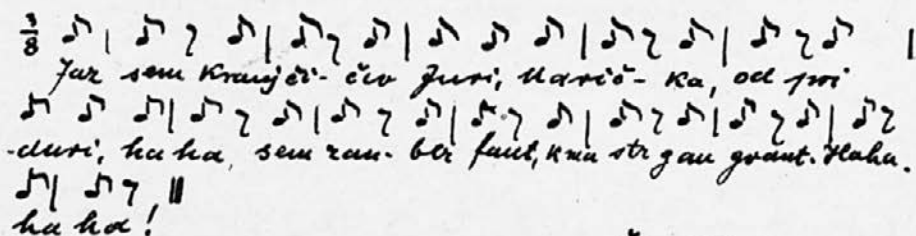 3/8
Jaz sem Kranjči- čiv Juri, Marič- ka, od pri
-duri, ha ha, sem zau- ber fant, kma str gau gvant. Haha.
ha ha!